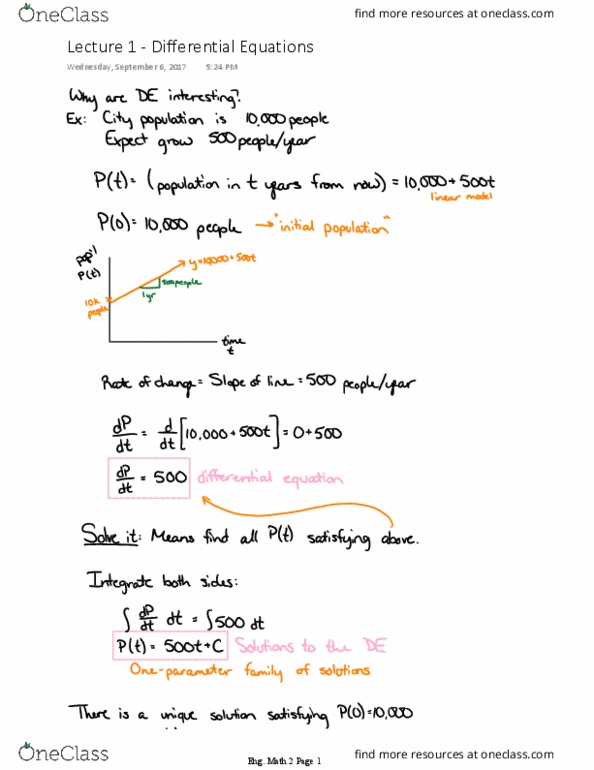 OneClass
find more resources at oneclass.com
Lecture 1 - Differential Equations
Wednesday, September 6, 2017 5:24 PM
Why are DE interesting?
Ex: City population is 10,000 people
Expect grow 500 people/year
P(t) = (population in t years from now) = 10,000 + 500t
linear model
P(0) = 10,000 people → "initial population"
pop'l
P(t)
y=10000+500t
500people
1yr
10k
people
time
t
Rate of change = Slope of line = 500 people/year
dP/dt = d/dt [10,000 + 500t] = 0 + 500
dP/dt = 500 differential equation
Solve it: Means find all P(t) satisfying above.
Integrate both sides:
∫ dP/dt dt = ∫500 dt
P(t) = 500t + C Solutions to the DE
One-parameter family of solutions
There is a unique solution satisfying P(0)=10,000
OneClass
Eng. Math 2 Page 1
find more resources at oneclass.com